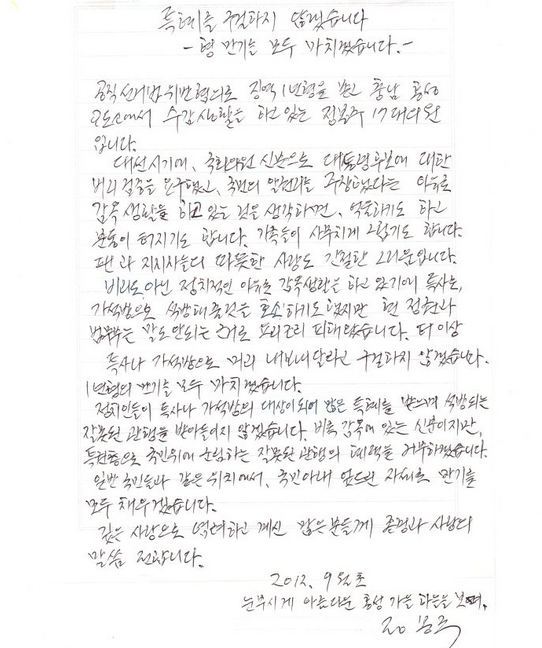 특혜를 구걸하지 않겠습니다
- 형 만기를 모두 마치겠습니다. -
공직선거법 위반 혐의로 징역 1년형을 받고 충남 홍성
교도소에서 수감생활을 하고 있는 정봉주 17대 의원
입니다.
대선시기에, 국회의원 신분으로 대통령후보에 대한
비리 검증을 요구했고, 국민의 알권리를 주장했다는 이유로
감옥 생활을 하고 있는 것을 생각하면, 억울하기도 하고
분통이 터지기도 합니다. 가족들이 사무치게 그립기도 합니다.
팬과 지지자들의 따뜻한 사랑도 간절한 그리움입니다.
비리도 아닌 정치적인 이유로 감옥생활을 하고 있기에 특사로,
가석방으로 석방해줄것을 호소하기도 했지만 현 정권과
법무부는 말도 안되는 근거로 요리조리 피해왔습니다. 더 이상
특사나 가석방으로 미리 내보내달라고 구걸하지 않겠습니다.
1년형의 만기를 모두 마치겠습니다.
정치인들이 특사나 가석방의 대상이 되어 많은 특혜를 받으며 석방되는
잘못된 관행을 받아들이지 않겠습니다. 비록 감옥에 있는 신분이지만,
특권층으로 국민위에 군림하는 잘못된 관행의 혜택을 거부하겠습니다.
일반 국민들과 같은 위치에서, 국민아래 엎드린 자세로 만기를
모두 채우겠습니다.
깊은 사랑으로 염려하고 계신 많은 분들께 존경과 사랑의
말씀 전합니다.
2012. 9월 초
눈부시게 아름다운 홍성 가을 하늘을 보며,
정봉주